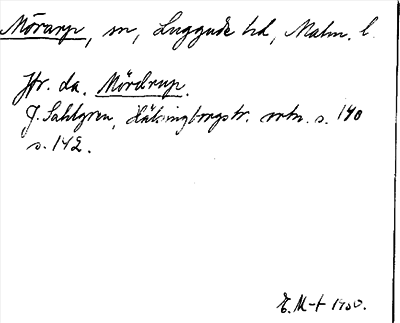 Mörarp, sn, Luggude hd, Malm. l.
Jfr. da. Mördrup.
J. Sahlgren, Hälsingborgstr. ortn. s. 140
s. 142.
E. M-t 1930.